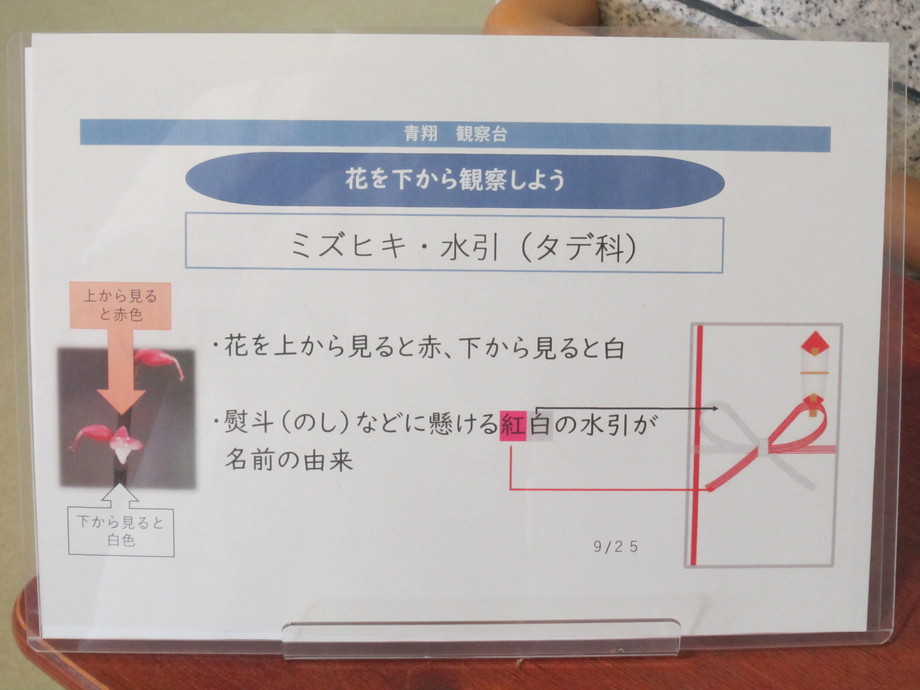 青翔　観察台
花を下から観察しよう
ミズヒキ・水引（タデ科）
上から見る
と赤色
・花を上から見ると赤、下から見ると白
・熨斗（のし）などに懸ける紅白の水引が
名前の由来
下から見ると
白色
9/25